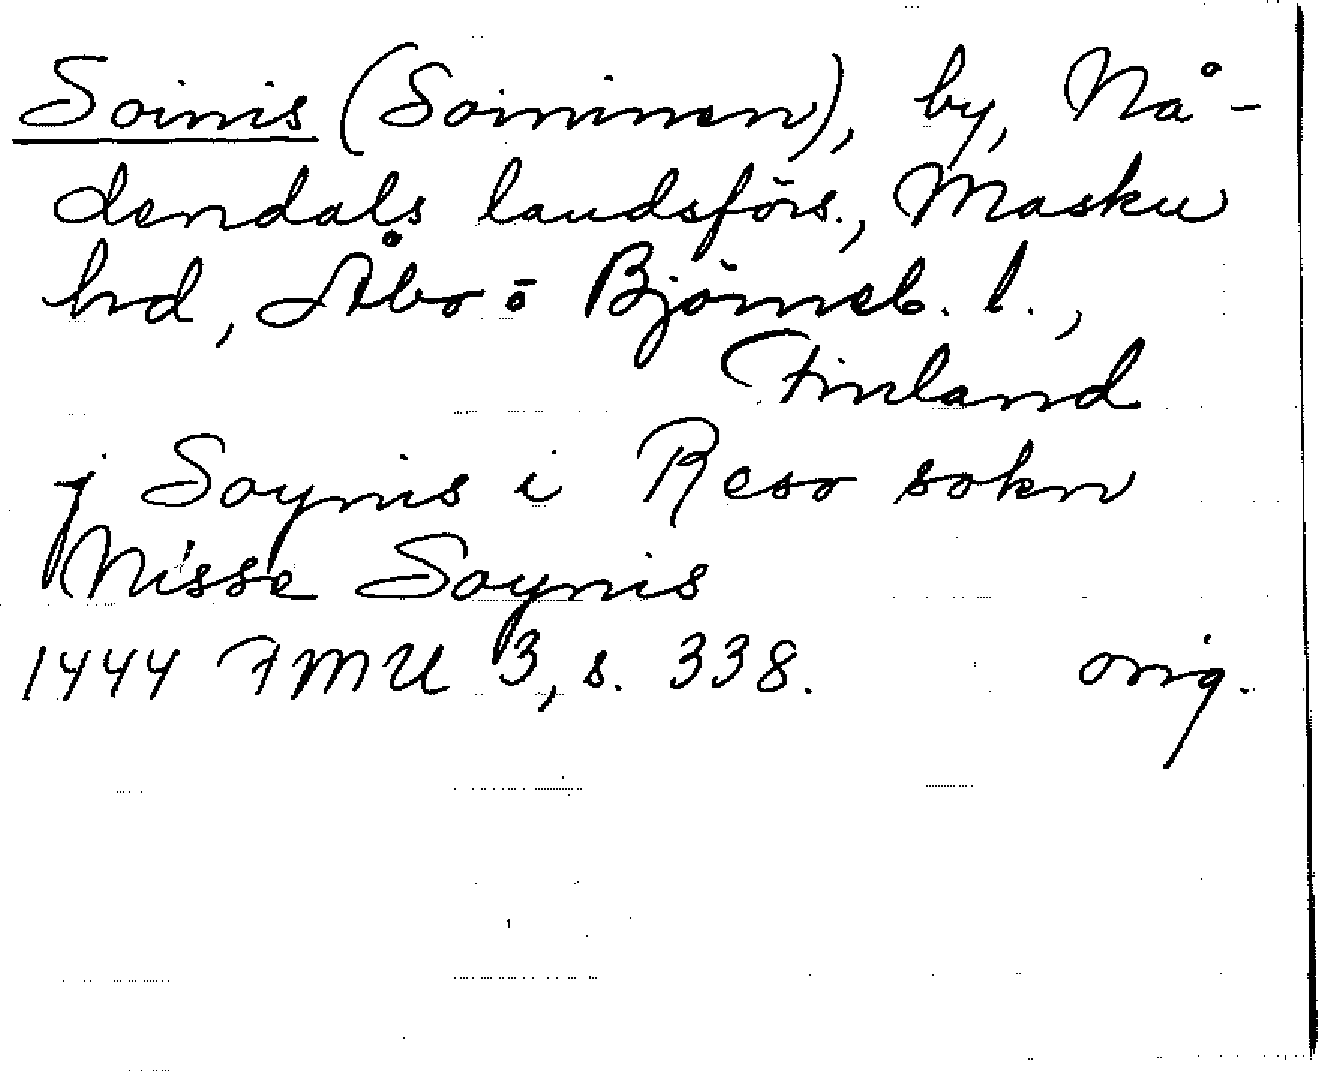 Soinis (Soininen), by, Nå-
dendals landsförs., Masku
hrd, Åbo o Björneb. l.,
Finland
j Soynis i Reso sokn
Nisse Soynis
1444 FMU 3, s. 338. orig.